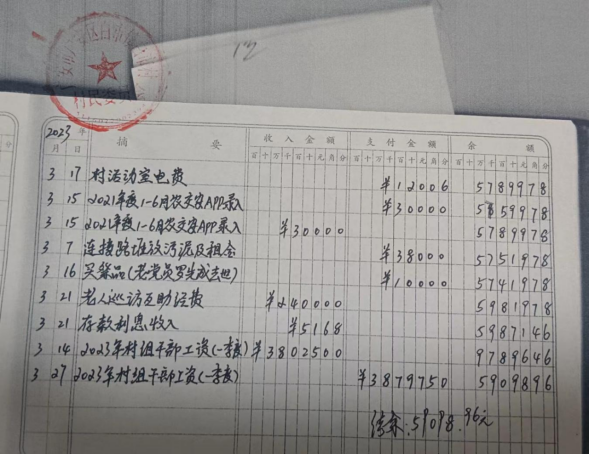 安市
区白
村民委
2023 年 摘 要 收入金额 支付金额 余 额
月 日 百十万千百十元角分 百十万千百十元角分 百十万千百十元角分
3 17 村活动室电费 ¥12006 5789978
3 15 2021年度1-6月农交安APP录入 ¥30000 5759978
3 15 2021年度1-6月农交安APP录入 ¥30000 5789978
3 7 连接路堆放污泥及租金 ¥38000 5751978
3 16 买祭品(老党员罗先成去世) ¥10000 5741978
3 21 老人巡访互助活费 ¥240000 5981978
3 21 存款利息收入 ¥5168 5987146
3 14 2023年村组干部工资(一季度) ¥3802500 9789646
3 27 2023年村组干部工资(一季度) ¥3879750 5909896
结余:59098.96元